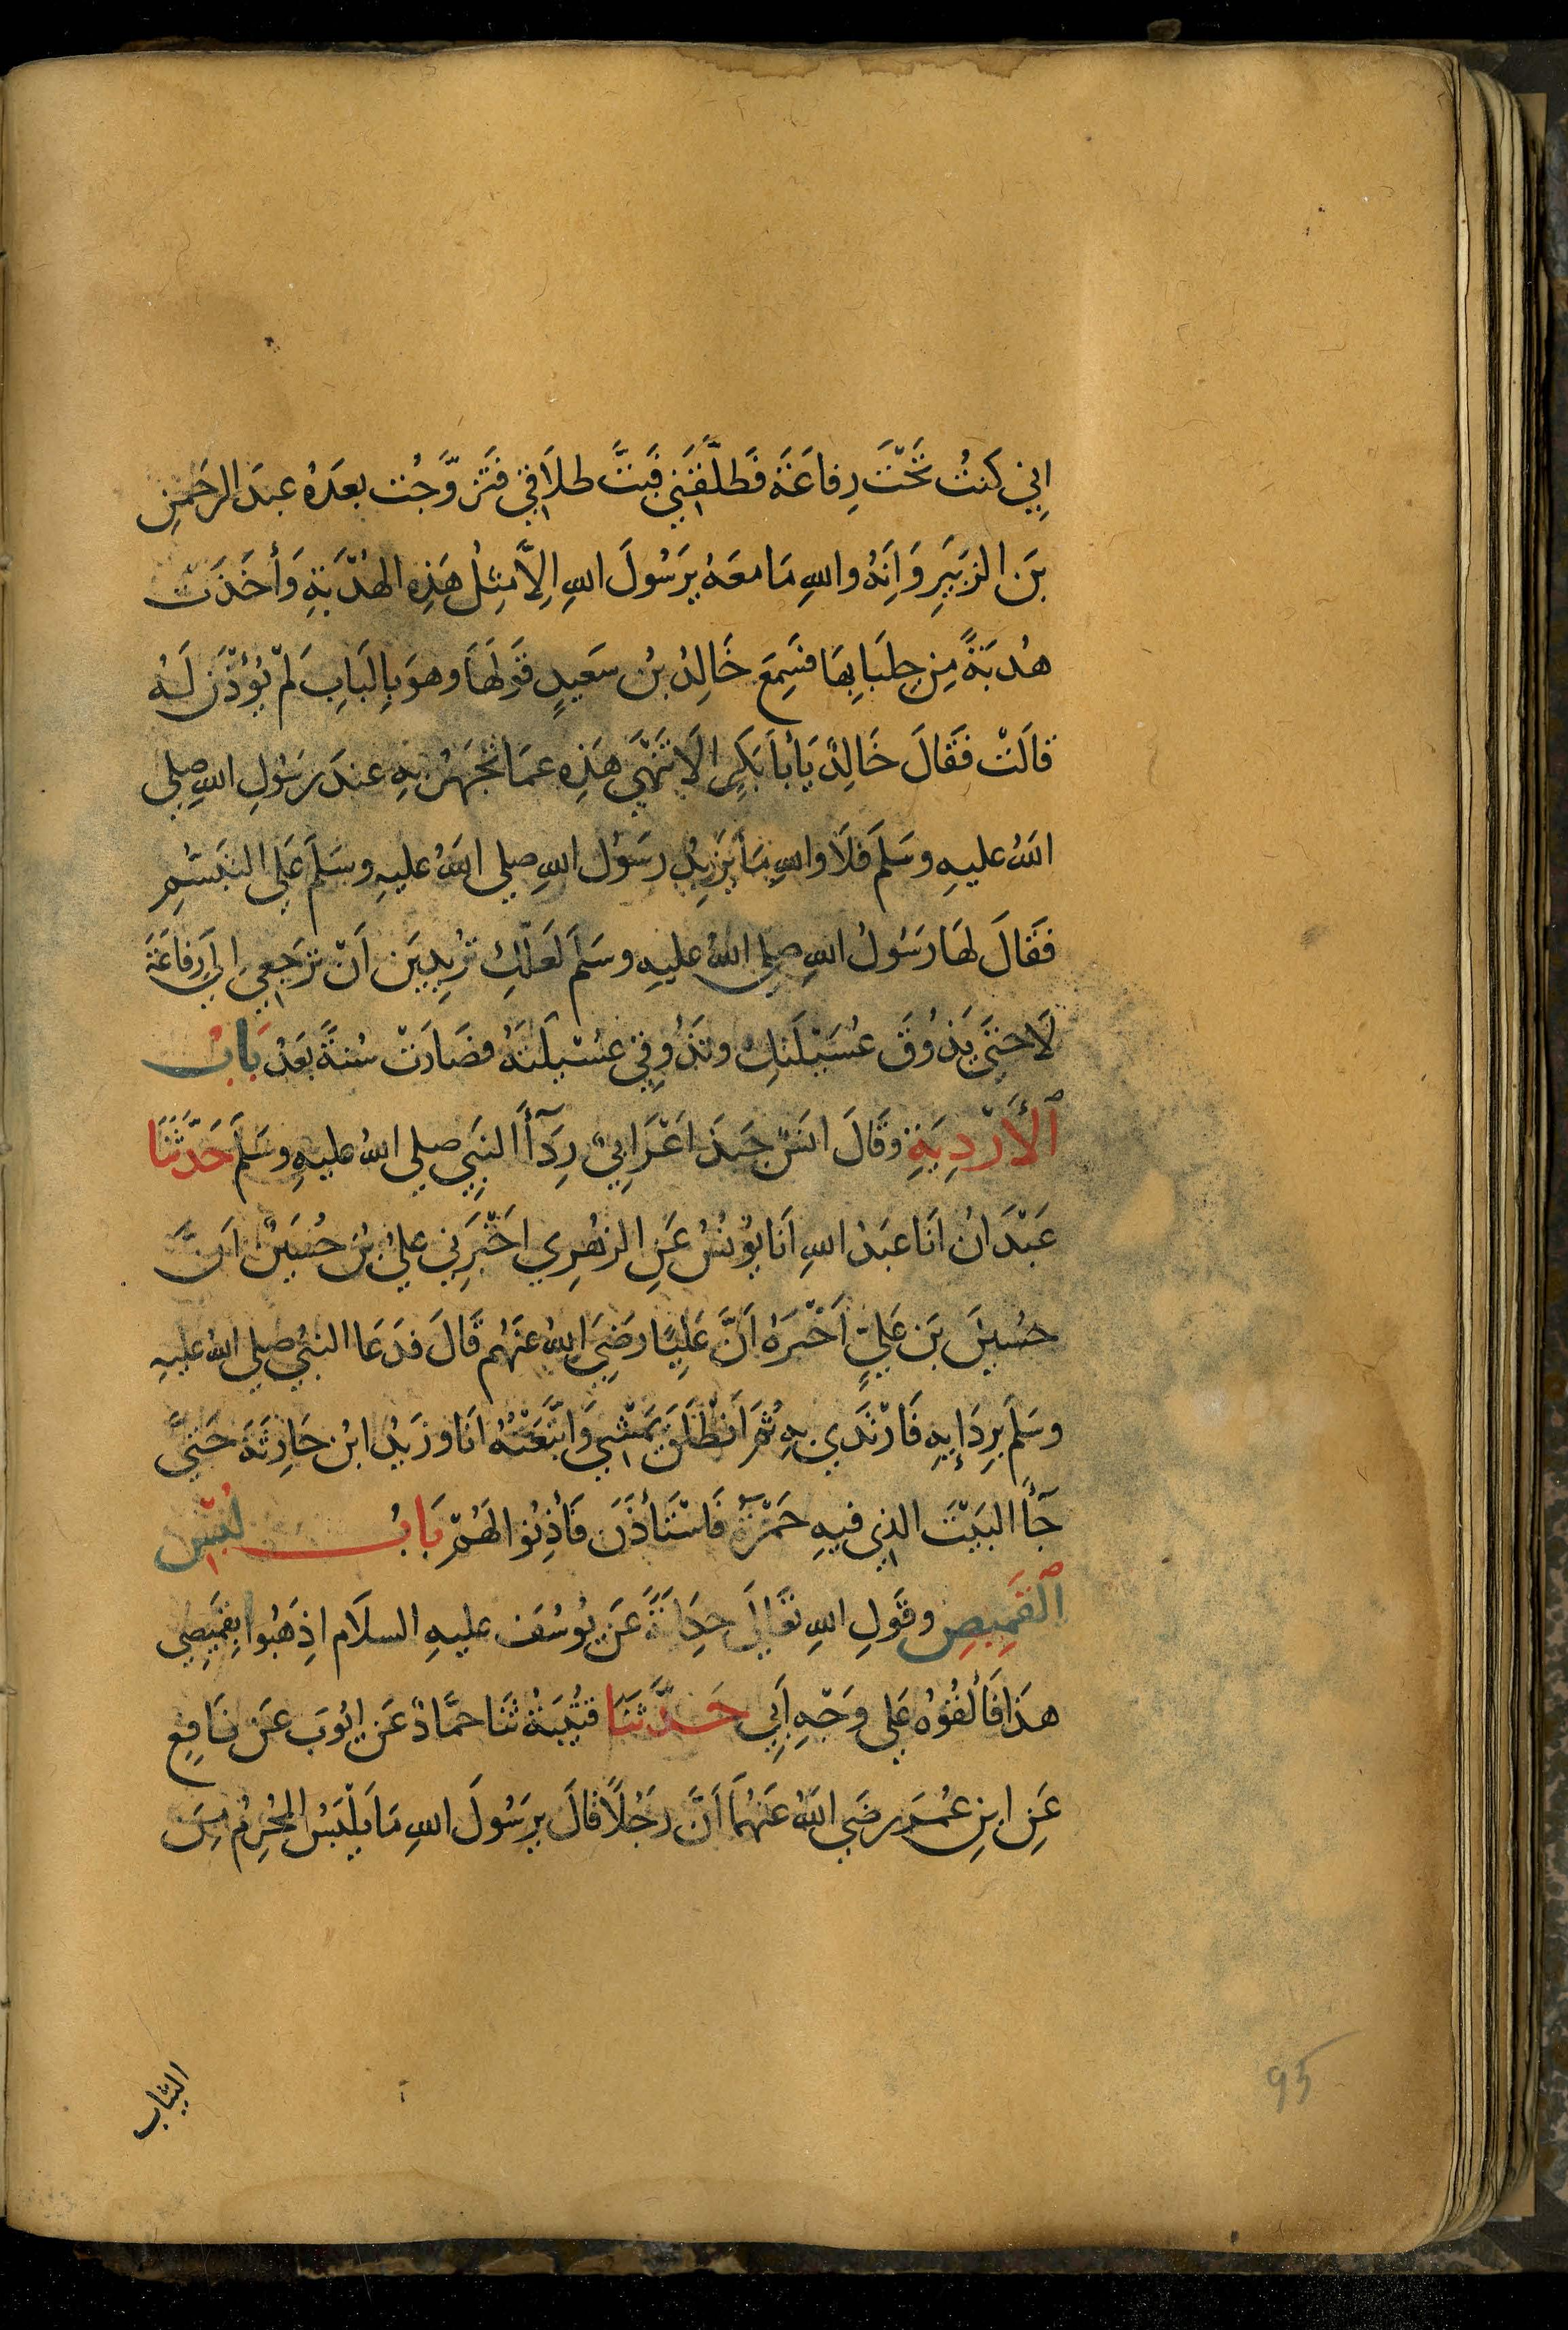 اِنِي كَنتُ تَحْتَ رِفاعَةَ فَطَلَّقَنِي فَبَتَّ طلَاقِي فَتَزوَّجْت بعدَهُ عبدَ الرحَمنِ
بنَ الزبَيرِ وَاَِنهُ واللهِ مَا معَهُ يرَسُولَ اللهِ اِلاَّ مِثِلُ هَذِه الهُدْبَةِ وَأخَذَت
هُدبَةً مِن جِلبَابِهَا فسَمِعَ خَالِدُ بنُ سَعيدٍ قَولَهَا وهوَ بِالبَابِ لَمْ يُؤْذَن لَهُ
قالَتْ فَقَالَ خَالِدٌ يَابَا بَكِرٍ الَا تَنهَي هَذِه عمَا تَجْهَرُ بِهِ عندَ رسُولِ اللهِ صلي
اللهُ عليهِ وسَلمَ فلَا واللهِ مَا يَزيدُ رسَوُل اللهِ صلي اللهُ عليهِ وسَلمَ عَلي التبَسُّمِ
فقَالَ لهَا رسُولُ اللهِ صلي اللهُ عليهِ وسَلمَ لعَلكِ تُرِيدِينَ اَنْ تَرجَعِي اِلَي رِفَاعَةَ
لَا حتَي يَذوُقَ عُسَيْلَتكِ وتَذُوقِي عسُيْلَتهُ فصَارَتْ سُنةً بَعدْ بَابُ
الأَرْدِيَةِ وقَالَ انسٌ جَبَذَ اعْرَابِيٌ رِدَآأَ النبَِي صلي اللهُ عليهِ وسَلمَ حَدَّثَنَا
عَبْدَانُ انَا عبَدُ اللهِ انَا يوُنسُ عَنِ الزهُرِي اخَبَرنِي عليُ بنُ حُسَينٍ اَنَّ
حسُينَ بَن عَليٍّ اَخْبَرهُ اَنَّ عَلِيًا رضَيَ اللهُ عنَهُم قَالَ فدَعَا النبيُ صلي اللهُ عليهِ
وسَلمَ برِدَايِهِ فَارْتَدَي بِهِ ثُمَ انَطْلَقَ يمَشْي وَاتَّبَعْتهُ انَا وزَيدُ ابنُ حَارِثَةَ حَتيَّ
جَآأَ البَيْتَ الذي فيهِ حَمْزةُ فَاسْتَأذَنَ فَأذِنوُا لهَمُ بَابُ لُبْسِ
القَمِيصِ وقَولِ اللهِ تعَالَي حِكَايَةً عَن يوُسُفَ عليهِ السلاَم اذِهَبُوا بِقمَيِصِي
هذَا فَألقُوْهُ عَلي وَجْهِ اَبِي حَدَّثنَا قتُيبَةُ ثنَا حمَّادٌ عَن ايُوبَ عَن نَافِعٍ
عَنِ ابنِ عُمَرَ رضَي اللهُ عَنهُمَا اَنَّ رجُلًا قالَ يرسُولَ اللهِ مَا يَلْبَسُ المحُرِمُ مِنَ
الثياب
95